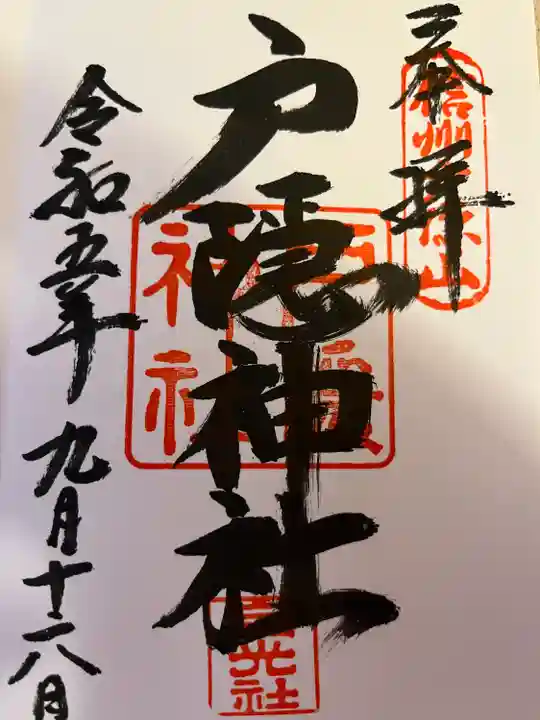 奉拝
信州戸隠山
戸隠神社
光社
令和五年九月十六日